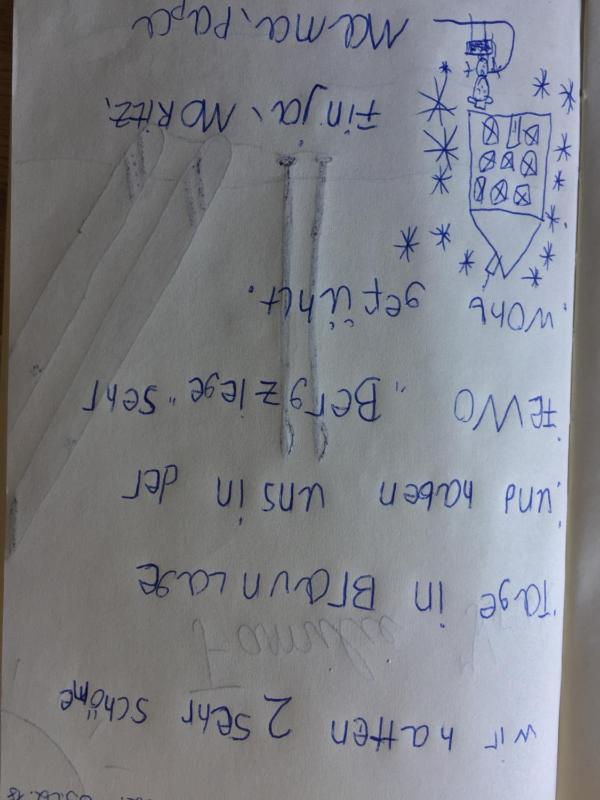 wir hatten 2 sehr schöne
Familie
Tage in Braunlage
und haben uns in der
FeWO „Bergziege" sehr
wohl gefühlt.
Finja, MORitz,
Mama, Papa